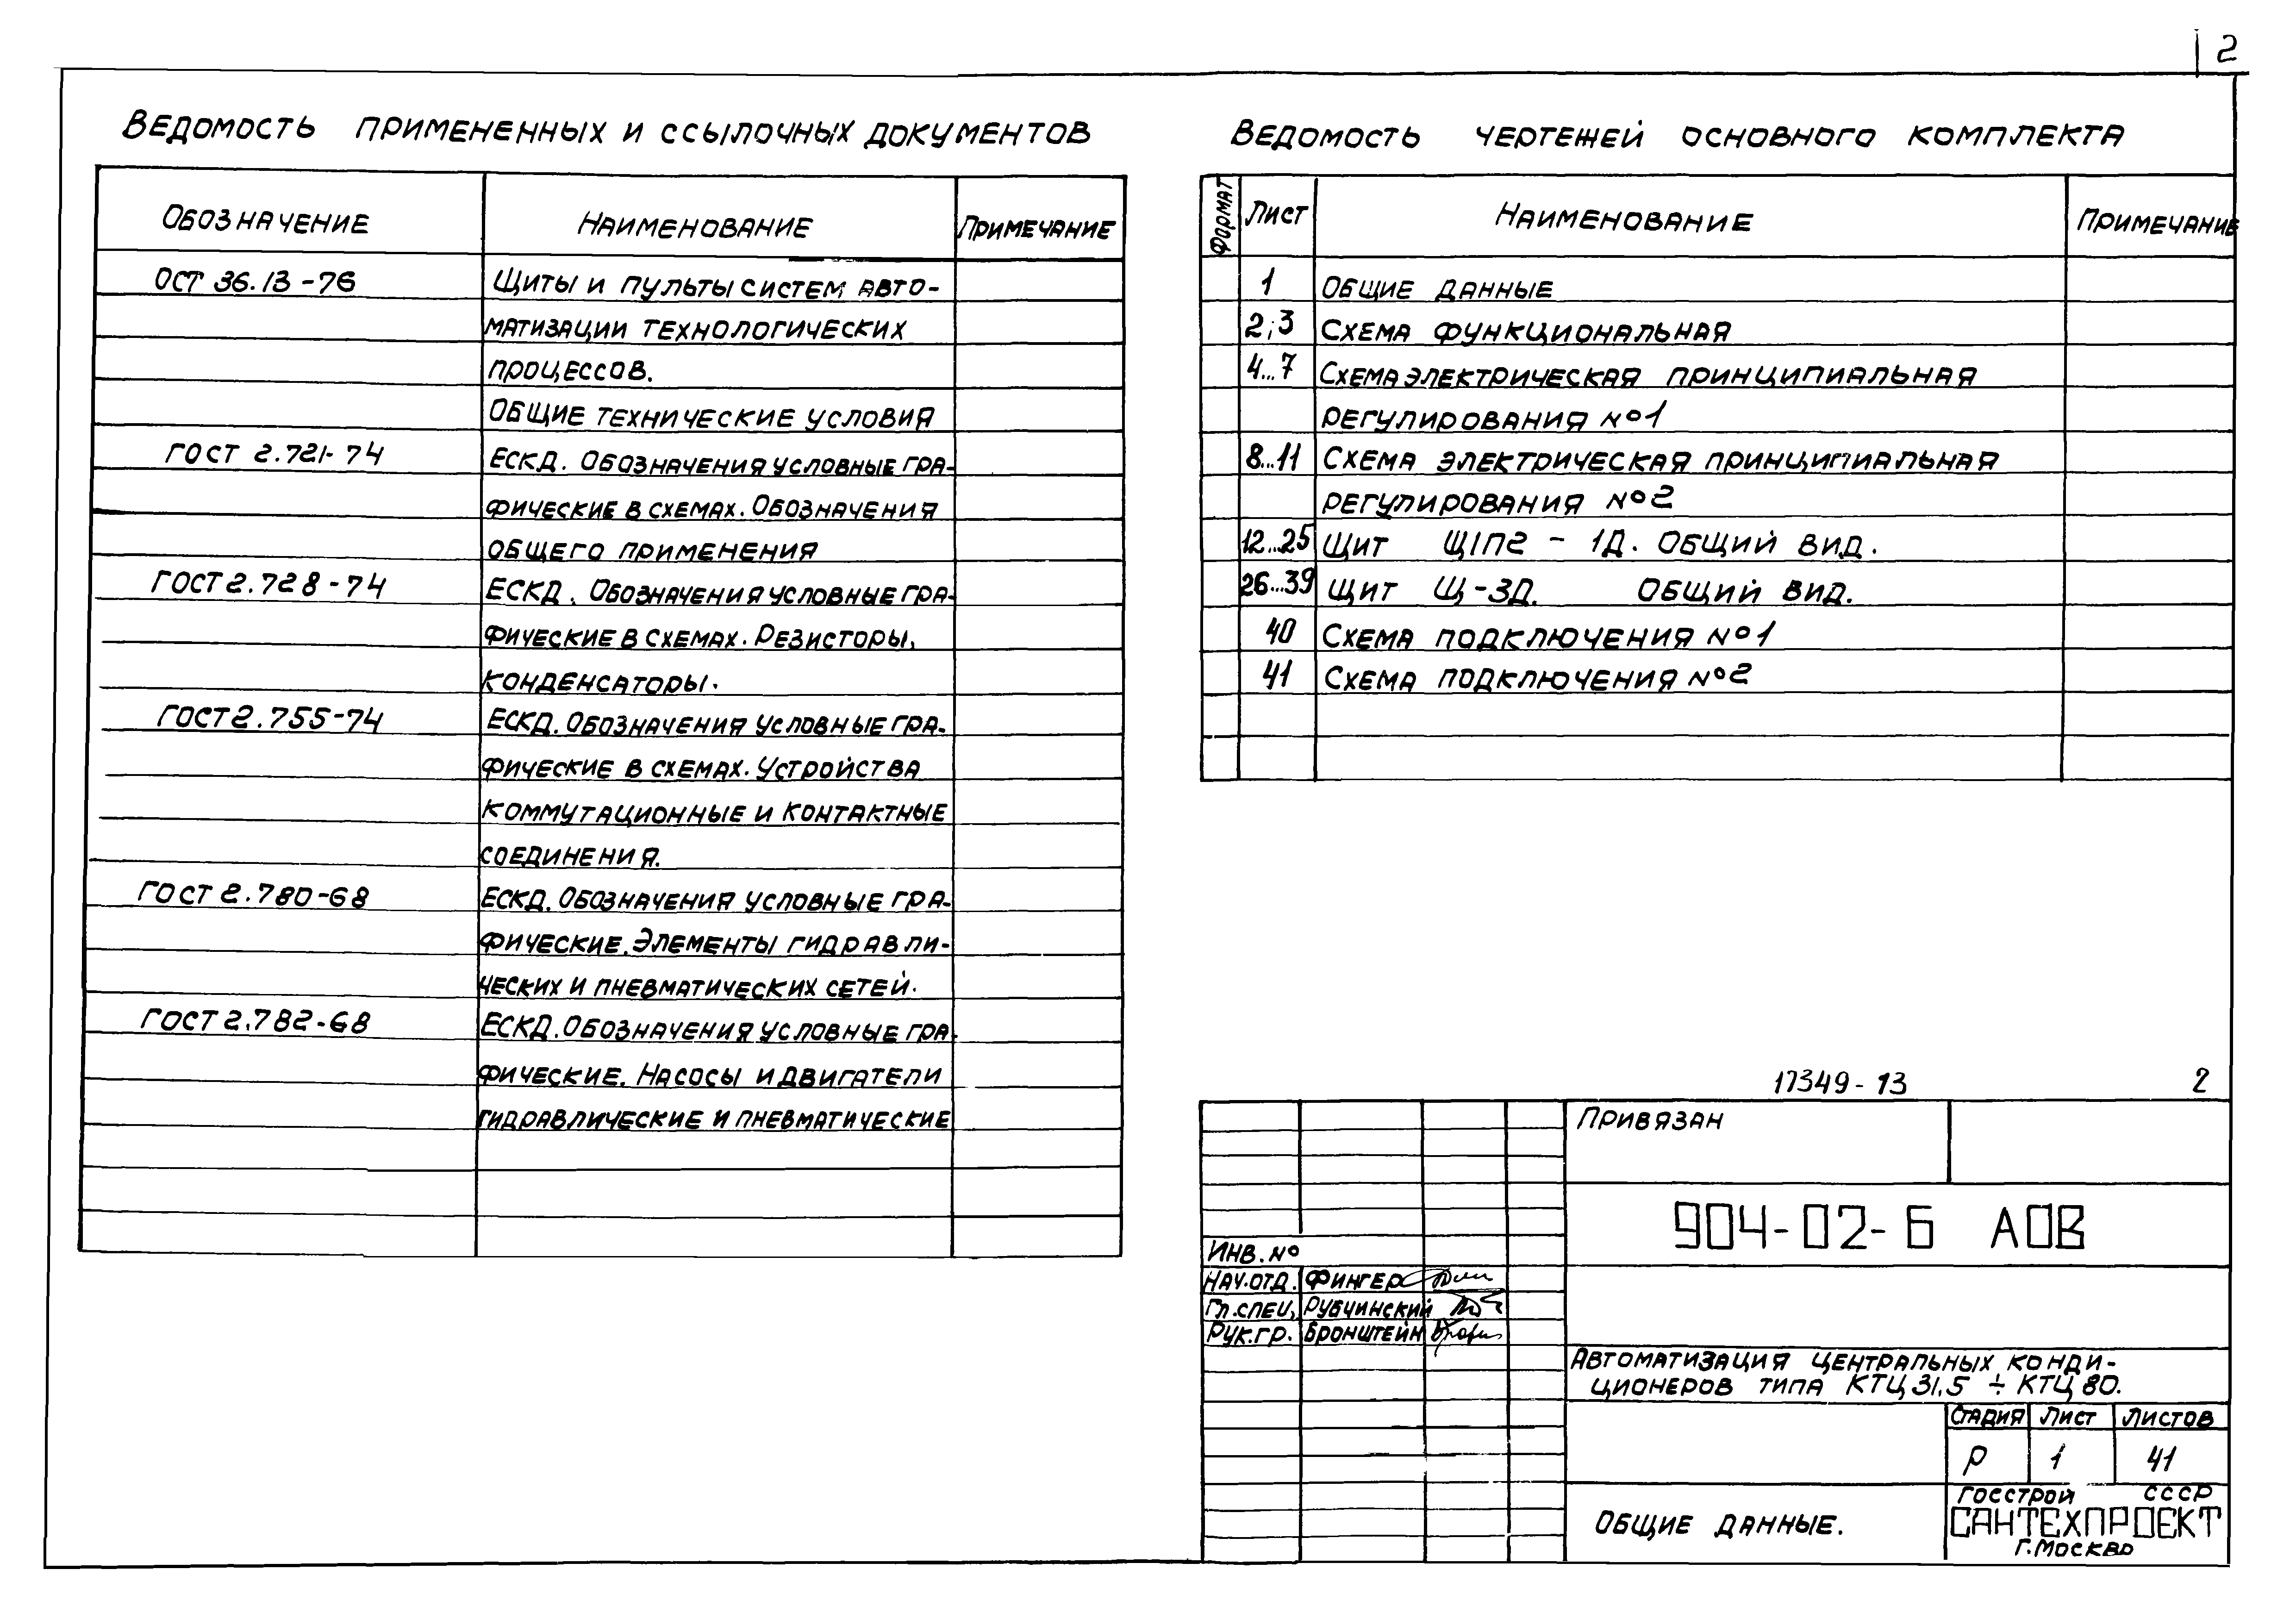 2
Ведомость примененных и ссылочных документов
Обозначение Наименование Примечание
ОСТ 36.13-76 Щиты и пульты систем авто-
матизации технологических
процессов.
Общие технические условия
ГОСТ 2.721-74 ЕСКД. Обозначения условные гра-
фические в схемах. Обозначения
общего применения
ГОСТ 2.728-74 ЕСКД. Обозначения условные гра-
фические в схемах. Резисторы,
конденсаторы.
ГОСТ 2.755-74 ЕСКД. Обозначения условные гра-
фические в схемах. Устройства
коммутационные и контактные
соединения.
ГОСТ 2.780-68 ЕСКД. Обозначения условные гра-
фические. Элементы гидравли-
ческих и пневматических сетей.
ГОСТ 2.782-68 ЕСКД. Обозначения условные гра-
фические. Насосы и двигатели
гидравлические и пневматические
Ведомость чертежей основного комплекта
Формат Лист Наименование Примечание
1 Общие данные
2;3 Схема функциональная
4...7 Схема электрическая принципиальная
регулирования №1
8...11 Схема электрическая принципиальная
регулирования №2
12...25 Щит Щ1П2 - 1Д. Общий вид.
26...39 Щит Щ-3Д. Общий вид.
40 Схема подключения №1
41 Схема подключения №2
17349-13 2
Привязан
904-02-6 АОВ
Инв. №
Нач.отд. Фингер
Гл.спец. Рубчинский
Рук.гр. Бронштейн
Автоматизация центральных конди-
ционеров типа КТЦ 31,5 ÷ КТЦ 80.
Стадия Лист Листов
Р 1 41
Общие данные.
Госстрой СССР
САНТЕХПРОЕКТ
г. Москва